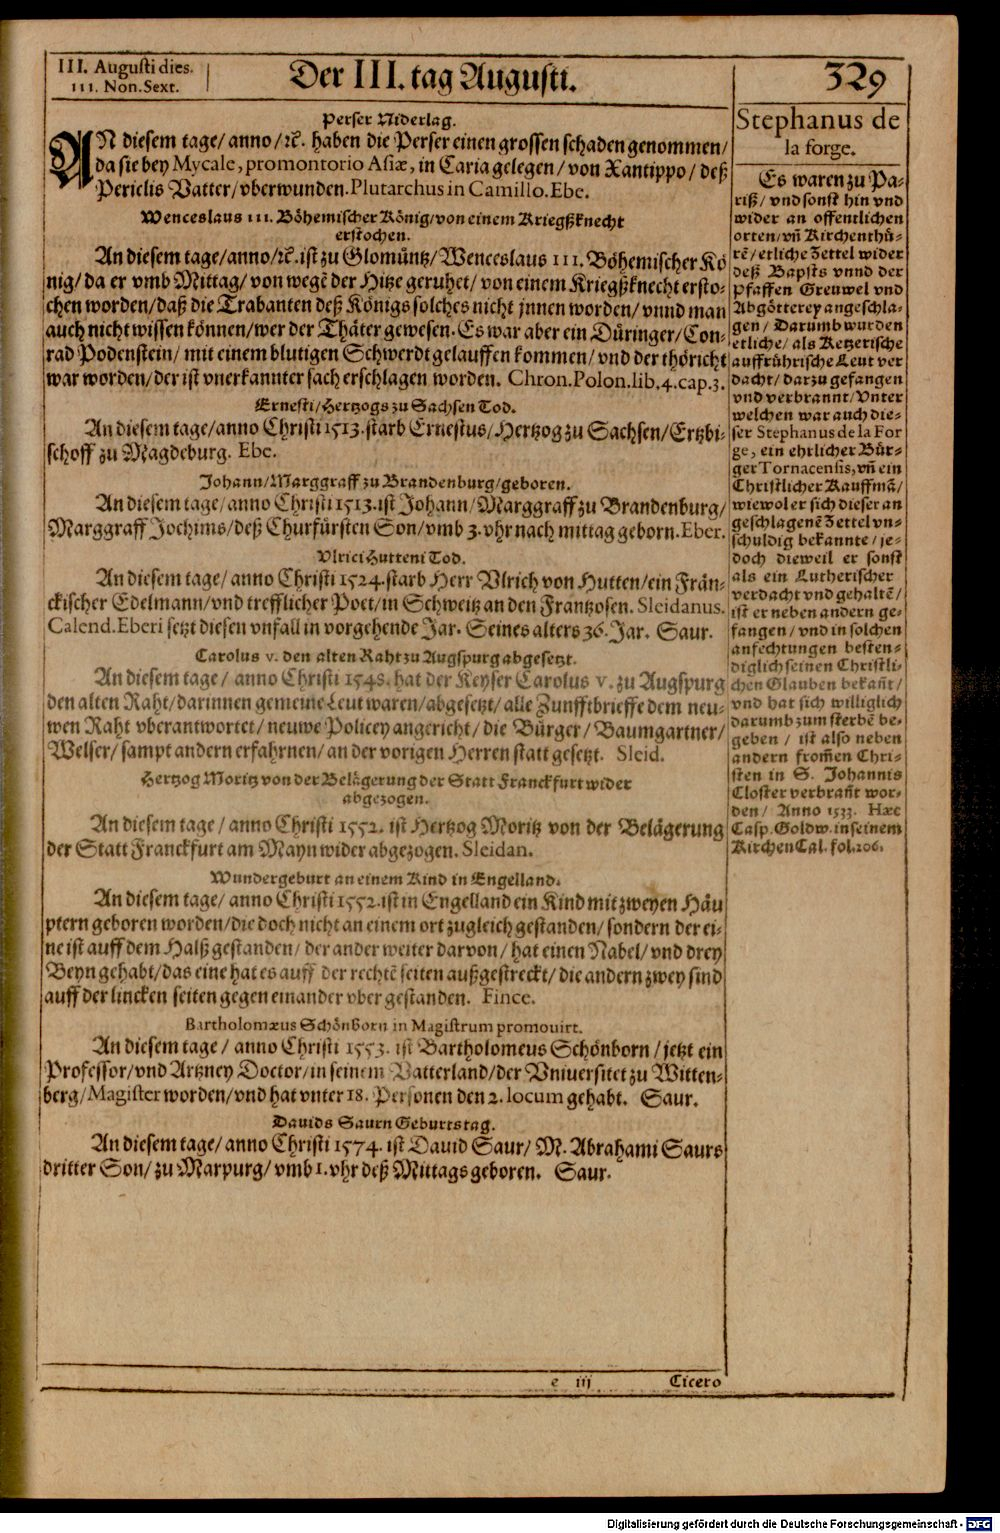 III. Augusti dies.
III. Non. Sext.
Der III. tag Augusti.
329
Perser Niderlag.
AN diesem tage/ anno/ ꝛc. haben die Perser einen grossen schaden genommen/
da sie bey Mycale, promontorio Asiæ, in Caria gelegen/ von Xantippo/ deß
Periclis Vatter/ vberwunden. Plutarchus in Camillo. Ebe.
Wenceslaus III. Böhemischer König/ von einem Kriegßknecht
erstochen.
An diesem tage/ anno/ ꝛc. ist zu Glomüntz/ Wenceslaus III. Böhemischer Kö
nig/ da er vmb Mittag/ von wegẽ der Hitze geruhet/ von einem Kriegßknecht ersto-
chen worden/ daß die Trabanten deß Königs solches nicht jnnen worden/ vnnd man
auch nicht wissen können/ wer der Thäter gewesen. Es war aber ein Düringer/ Con-
rad Podenstein/ mit einem blutigen Schwerdt gelauffen kommen/ vnd der thöricht
war worden/ der ist vnerkannter sach erschlagen worden. Chron. Polon. lib. 4. cap. 3.
Ernesti/ Hertzogs zu Sachsen Tod.
An diesem tage/ anno Christi 1513. starb Ernestus/ Hertzog zu Sachsen/ Ertzbi-
schoff zu Magdeburg. Ebe.
Johann/ Marggraff zu Brandenburg/ geboren.
An diesem tage/ anno Christi 1513. ist Johann/ Marggraff zu Brandenburg/
Marggraff Jochims/ deß Churfürsten Son/ vmb 3. vhr nach mittag geborn. Eber.
Vlrici Hutteni Tod.
An diesem tage/ anno Christi 1524. starb Herr Vlrich von Hutten/ ein Frän-
ckischer Edelmann/ vnd trefflicher Poet/ in Schweitz an den Frantzosen. Sleidanus.
Calend. Eberi setzt diesen vnfall in vorgehende Jar. Seines alters 36. Jar. Saur.
Carolus v. den alten Raht zu Augspurg abgesetzt.
An diesem tage/ anno Christi 1548. hat der Keyser Carolus v. zu Augspurg
den alten Raht/ darinnen gemeine Leut waren/ abgesetzt/ alle Zunfftbrieffe dem neu-
wen Raht vberantwortet/ neuwe Policey angericht/ die Bürger/ Baumgartner/
Welser/ sampt andern erfahrnen/ an der vorigen Herren statt gesetzt. Sleid.
Hertzog Moritz von der Belägerung der Statt Franckfurt wider
abgezogen.
An diesem tage/ anno Christi 1552. ist Hertzog Moritz von der Belägerung
der Statt Franckfurt am Mayn wider abgezogen. Sleidan.
Wundergeburt an einem Kind in Engelland.
An diesem tage/ anno Christi 1552. ist in Engelland ein Kind mit zweyen Häu
ptern geboren worden/ die doch nicht an einem ort zugleich gestanden/ sondern der ei-
ne ist auff dem Halß gestanden/ der ander weiter darvon/ hat einen Nabel/ vnd drey
Beyn gehabt/ das eine hat es auff der rechtẽ seiten außgestreckt/ die andern zwey sind
auff der lincken seiten gegen einander vber gestanden. Fince.
Bartholomæus Schönborn in Magistrum promouirt.
An diesem tage/ anno Christi 1553. ist Bartholomeus Schönborn/ jetzt ein
Professor/ vnd Artzney Doctor/ in seinem Vatterland/ der Vniuersitet zu Witten-
berg/ Magister worden/ vnd hat vnter 18. Personen den 2. locum gehabt. Saur.
Dauids Saurn Geburtstag.
An diesem tage/ anno Christi 1574. ist Dauid Saur/ M. Abrahami Saurs
dritter Son/ zu Marpurg/ vmb 1. vhr deß Mittags geboren. Saur.
e iij
Cicero
Stephanus de
la forge.
Es waren zu Pa-
riß/ vnd sonst hin vnd
wider an offentlichen
orten/ vñ Kirchenthü-
rẽ/ etliche Zettel wider
deß Bapsts vnnd der
Pfaffen Greuwel vnd
Abgötterey angeschla-
gen/ Darumb wurden
etliche/ als Ketzerische
auffrührische Leut ver
dacht/ darzu gefangen
vnd verbrannt/ Vnter
welchen war auch die-
ser Stephanus de la For
ge, ein ehrlicher Bür-
ger Tornacensis, vñ ein
Christlicher Kauffmã/
wiewol er sich dieser an
geschlagenẽ Zettel vn-
schuldig bekannte/ je-
doch dieweil er sonst
als ein Lutherischer
verdacht vnd gehaltẽ/
ist er neben andern ge-
fangen/ vnd in solchen
anfechtungen besten-
diglich seinen Christli-
chen Glauben bekañt/
vnd hat sich williglich
darumb zum sterbẽ be-
geben/ ist also neben
andern from̃en Chri-
sten in S. Johannis
Closter verbrañt wor-
den/ Anno 1533. Hæc
Casp. Goldw. in seinem
Kirchen Cal. fol. 206.
Digitalisierung gefördert durch die Deutsche Forschungsgemeinschaft - DFG